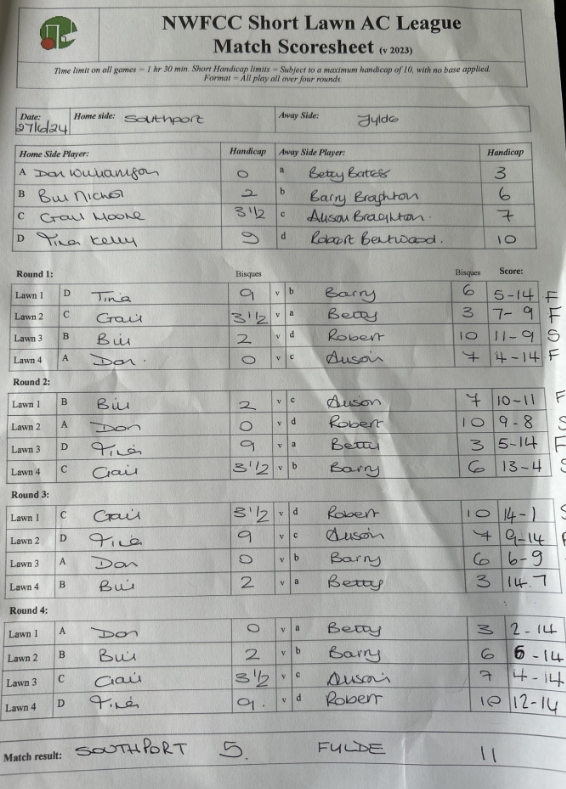 NWFCC Short Lawn AC League
Match Scoresheet (v 2023)
Time limit on all games = 1 hr 30 min. Short Handicap limits = Subject to a maximum handicap of 10, with no base applied.
Format = All play all over four rounds.
Date: 27/6/24 Home side: Southport Away Side: Fylde
Home Side Player: Handicap Away Side Player: Handicap
A Don Williamson 0 a Betty Bates 3
B Bill Nichol 2 b Barry Braghton 6
C Gail Moore 3 1/2 c Alison Braghton. 7
D Tina Kelly 9 d Robert Bentwood. 10
Round 1: Bisques Bisques Score:
Lawn 1 D Tina 9 v b Barry 6 5-14 F
Lawn 2 C Gail 3 1/2 v a Betty 3 7-9 F
Lawn 3 B Bill 2 v d Robert 10 11-9 S
Lawn 4 A Don. 0 v c Alison 7 4-14 F
Round 2:
Lawn 1 B Bill 2 v c Alison 7 10-11 F
Lawn 2 A Don 0 v d Robert 10 9-8 S
Lawn 3 D Tina 9 v a Betty 3 5-14 F
Lawn 4 C Gail 3 1/2 v b Barry 6 13-4 S
Round 3:
Lawn 1 C Gail 3 1/2 v d Robert 10 14-1 S
Lawn 2 D Tina 9 v c Alison 7 9-14 F
Lawn 3 A Don 0 v b Barry 6 6-9
Lawn 4 B Bill 2 v a Betty 3 14.7
Round 4:
Lawn 1 A Don 0 v a Betty 3 2-14
Lawn 2 B Bill 2 v b Barry 6 6-14
Lawn 3 C Gail 3 1/2 v c Alison 7 4-14
Lawn 4 D Tina 9. v d Robert 10 12-14
Match result: SOUTHPORT 5. FYLDE 11